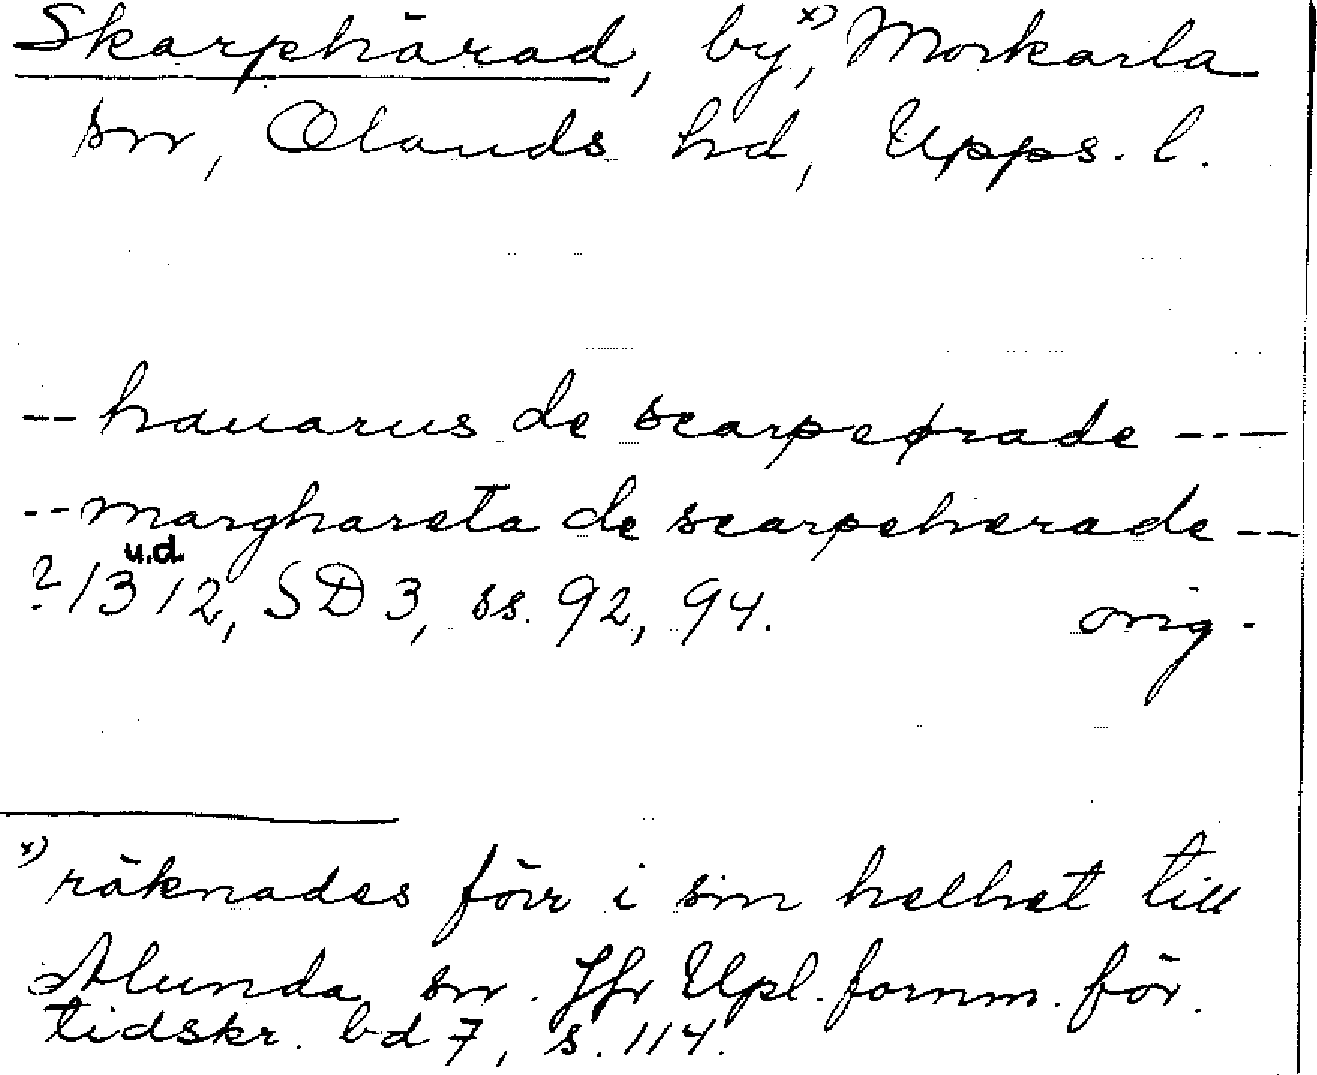 Skarphärad, by,ˣ⁾ Morkarla
sn, Olands hd, Upps. l.
-- hauarus de scarpeþrade ---
-- marghareta de scarpeherade --
u.d.
? 1312, SD 3, ss. 92, 94. orig.
ˣ⁾ räknades förr i sin helhet till
Alunda sn. Jfr Upl. fornm. för.
tidskr. bd 7, s. 114.